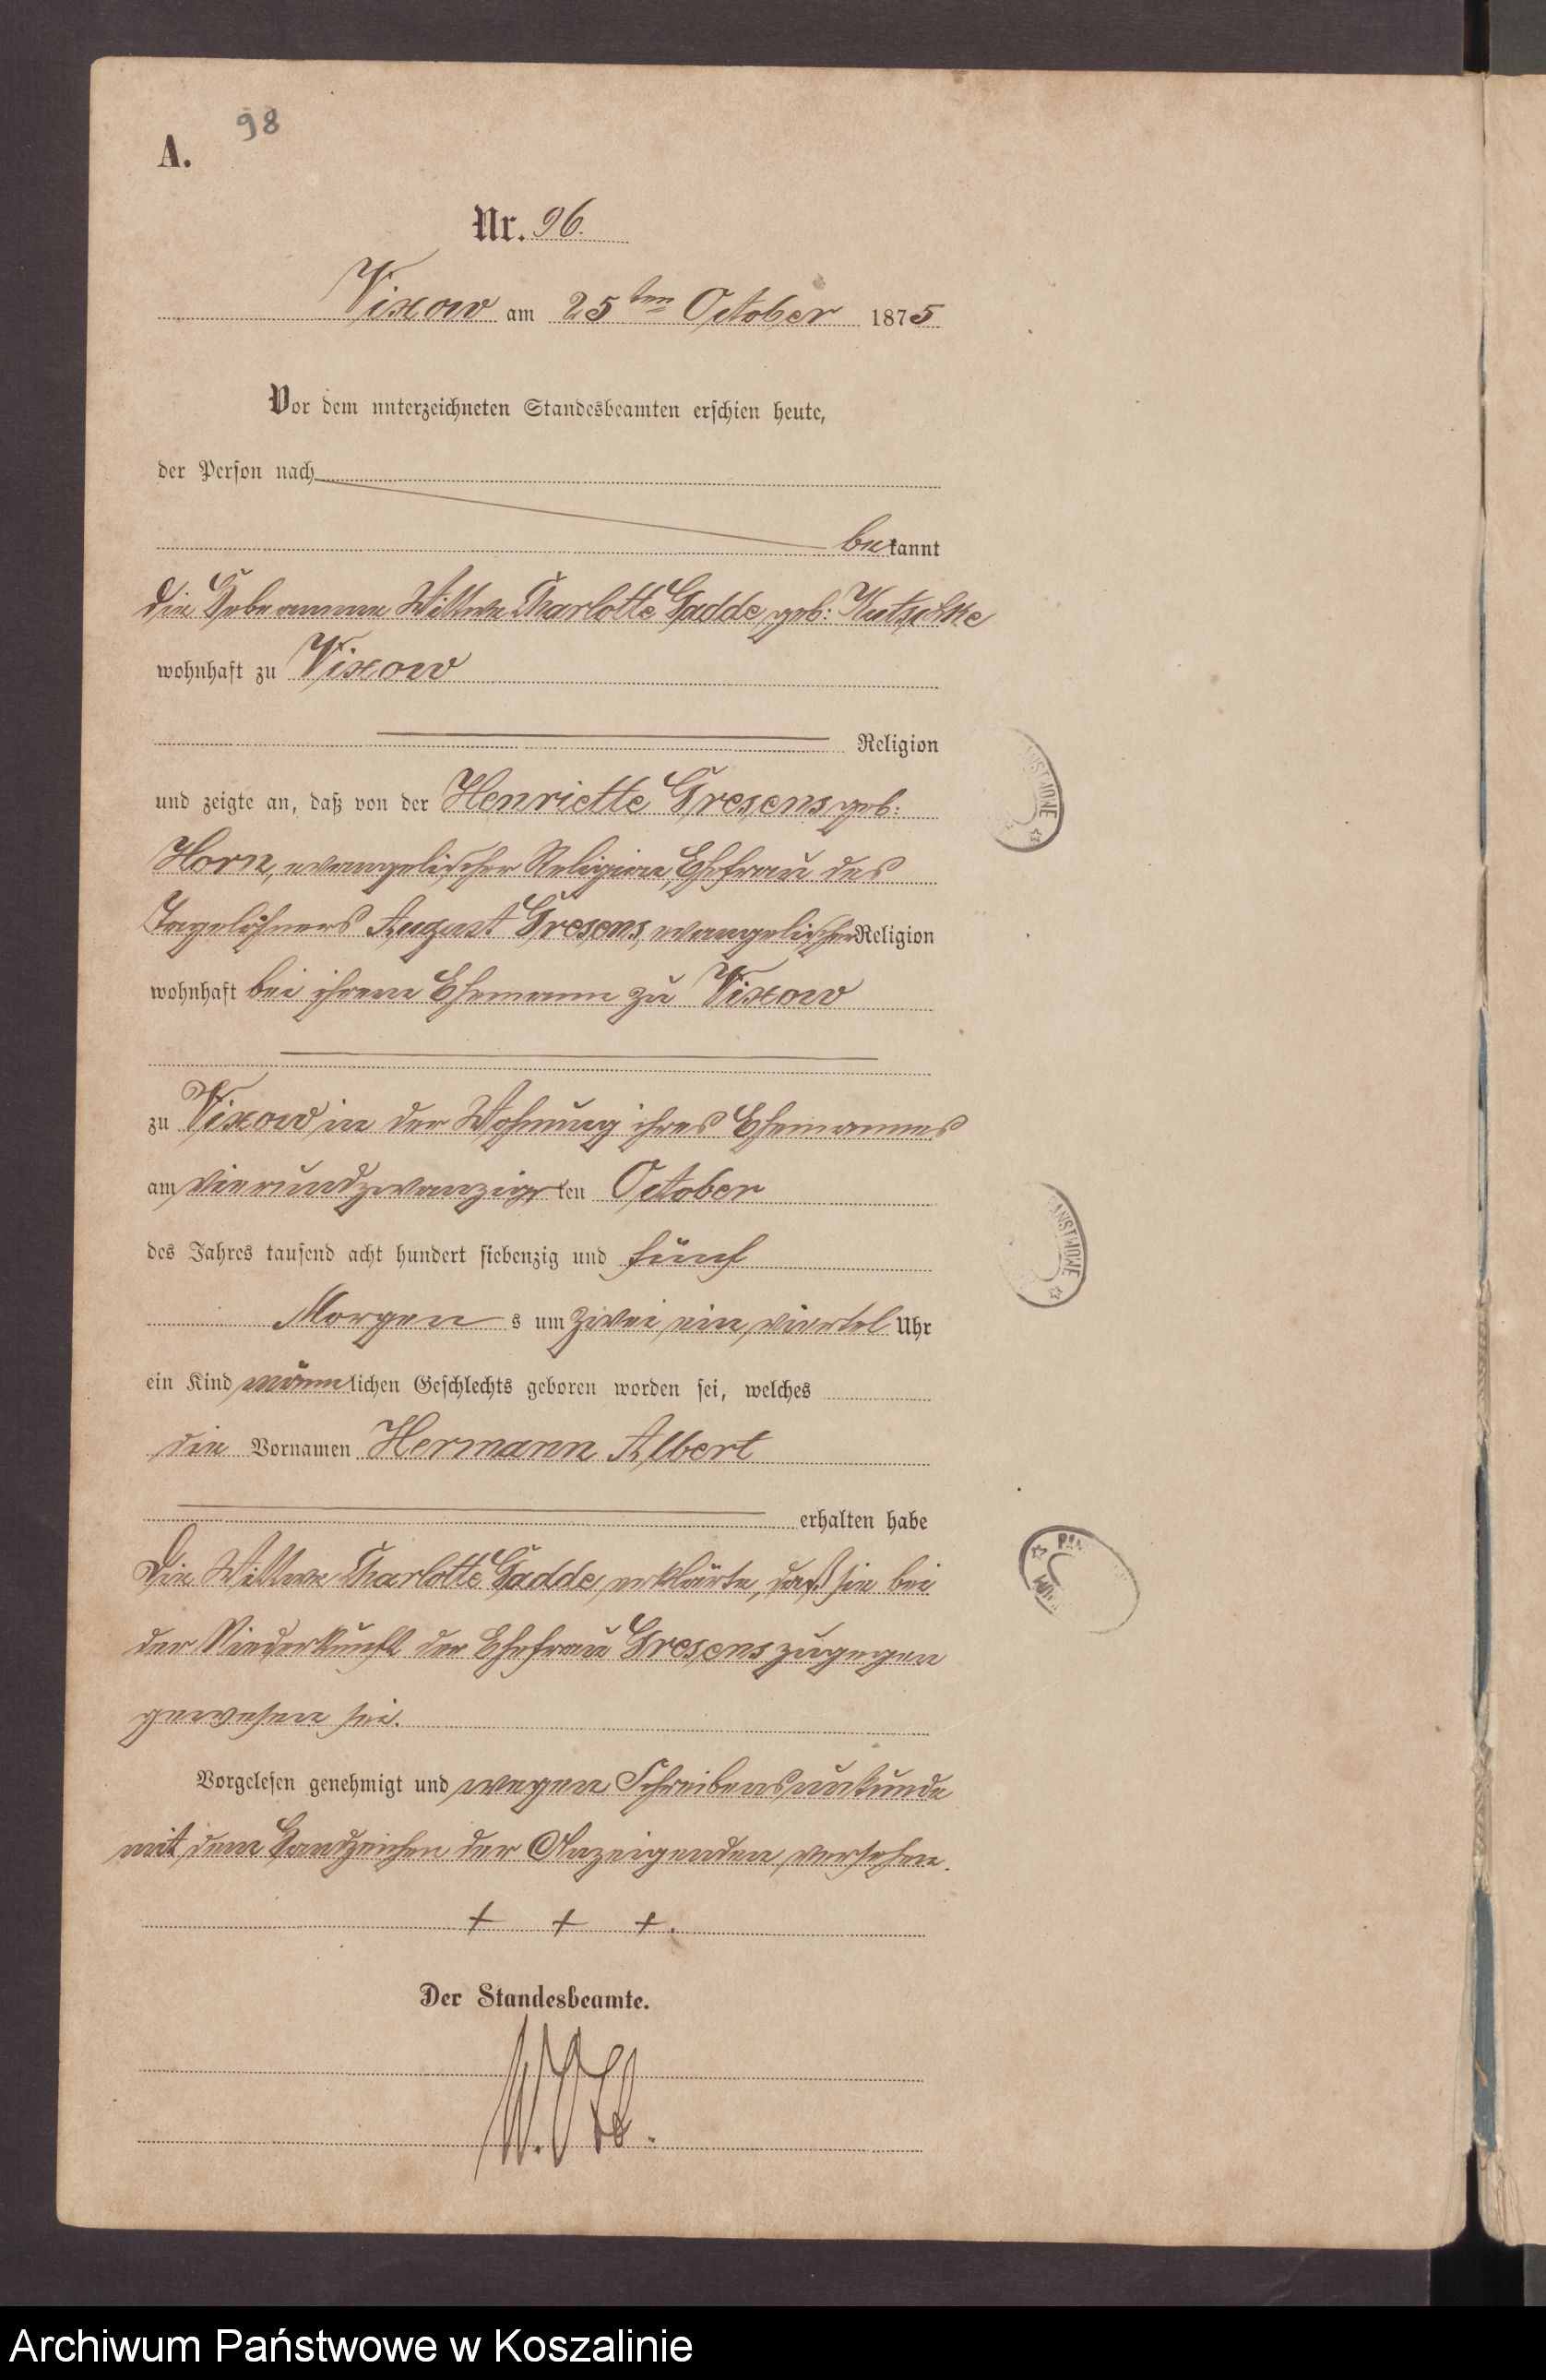 98
A.
Nr. 96.
Vixow am 25ten October 1875
Vor dem unterzeichneten Standesbeamten erschien heute,
der Person nach
bekannt
die Hebeamme Wittwe Charlotte Gadde, geb: Kutschke
wohnhaft zu Vixow
Religion
und zeigte an, daß von der Henriette Gresens geb:
Horn, evangelischer Religion, Ehefrau des
Tagelöhners August Gresens, evangelischer Religion
wohnhaft bei ihrem Ehemann zu Vixow
zu Vixow in der Wohnung ihres Ehemannes
am vierundzwanzigsten October
des Jahres tausend acht hundert siebenzig und fünf
Morgens um zwei ein viertel Uhr
ein Kind männlichen Geschlechts geboren worden sei, welches
die Vornamen Hermann Albert
erhalten habe
Die Wittwe Charlotte Gadde, erklärte, daß sie bei
der Niederkunft der Ehefrau Gresens zugegen
gewesen sei.
Vorgelesen genehmigt und wegen Schreibensunkunde
mit dem Handzeichen der Anzeigenden versehen.
+ + +.
Der Standesbeamte.
Archiwum Państwowe w Koszalinie